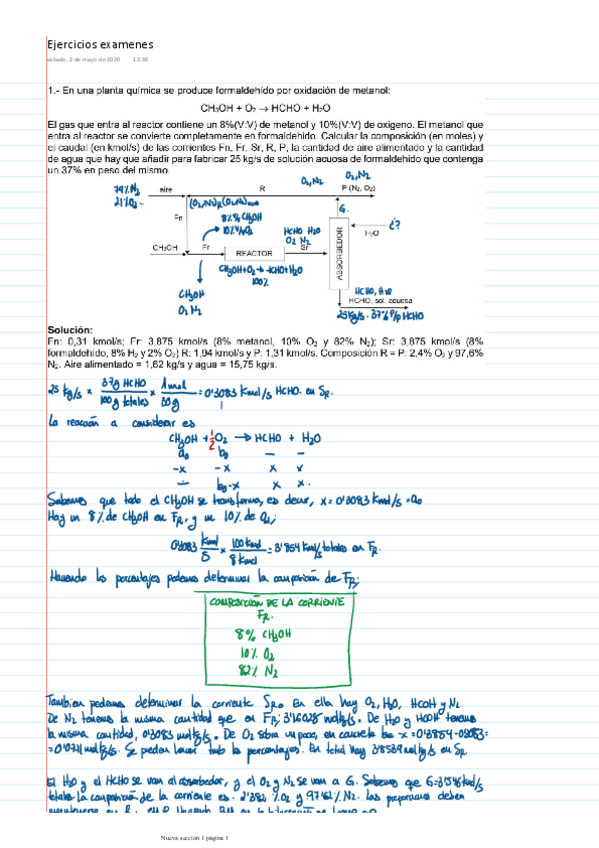 Ejercicios examenes
sábado, 2 de mayo de 2020 12:38
1.- En una planta química se produce formaldehído por oxidación de metanol:
CH₃OH + O₂ → HCHO + H₂O
El gas que entra al reactor contiene un 8%(V:V) de metanol y 10%(V:V) de oxígeno. El metanol que
entra al reactor se convierte completamente en formaldehído. Calcular la composición (en moles) y
el caudal (en kmol/s) de las corrientes Fn, Fr, Sr, R, P, la cantidad de aire alimentado y la cantidad
de agua que hay que añadir para fabricar 25 kg/s de solución acuosa de formaldehído que contenga
un 37% en peso del mismo.
79% N₂
21% O₂
aire
R
O₂, N₂
O₂, N₂
P (N₂, O₂)
Fn
8% CH₃OH
10% O₂
G
¿?
H₂O
CH₃OH
Fr
REACTOR
HCHO H₂O
O₂ N₂
Sr
ABSORBEDOR
CH₃OH+O₂→HCHO+H₂O
100%
CH₃OH
O₂ N₂
HCHO, H₂O
HCHO, sol. acuosa
25kg/s · 37% P/p HCHO
Solución:
Fn: 0,31 kmol/s; Fr: 3,875 kmol/s (8% metanol, 10% O₂ y 82% N₂); Sr: 3,875 kmol/s (8%
formaldehído, 8% H₂ y 2% O₂) R: 1,94 kmol/s y P: 1,31 kmol/s. Composición R = P: 2,4% O₂ y 97,6%
N₂. Aire alimentado = 1,62 kg/s y agua = 15,75 kg/s.
25 kg/s × 37g HCHO / 100g totales × 1mol / 30g = 0'3083 kmol/s HCHO. en SR.
La reacción a considerar es
CH₃OH + ½O₂ → HCHO + H₂O
a₀ b₀ – –
-x -x x x
– b₀-x x x.
Sabemos que todo el CH₃OH se transforma, es decir, x = 0'3083 kmol/s = a₀
Hay un 8% de CH₃OH en FR, y un 10% de O₂;
0'3083 kmol/s × 100 kmol / 8 kmol = 3'854 kmol/s totales en FR.
Haciendo los porcentajes podemos determinar la composición de FR;
COMPOSICIÓN DE LA CORRIENTE
FR.
8% CH₃OH
10% O₂
82% N₂
También podemos determinar la corriente SR, en ella hay O₂, H₂O, HCOH y N₂
De N₂ tenemos la misma cantidad que en FR; 3'16028 mol/s. De H₂O y HCOH tenemos
la misma cantidad, 0'3083 mol/s. De O₂ sobra un poco, en concreto b₀-x = 0'3854-0'3083=
=0'0771 mol/s. Se pueden hacer todo los porcentajes. En total hay 3'8539 mol/s en SR
El H₂O y el HCHO se van al absorbedor, y el O₂ y N₂ se van a G. Sabemos que
totales la composición de la corriente es 2'382% O₂ y 97'62% N₂. Las proporciones deben
Nueva sección 1 página 1